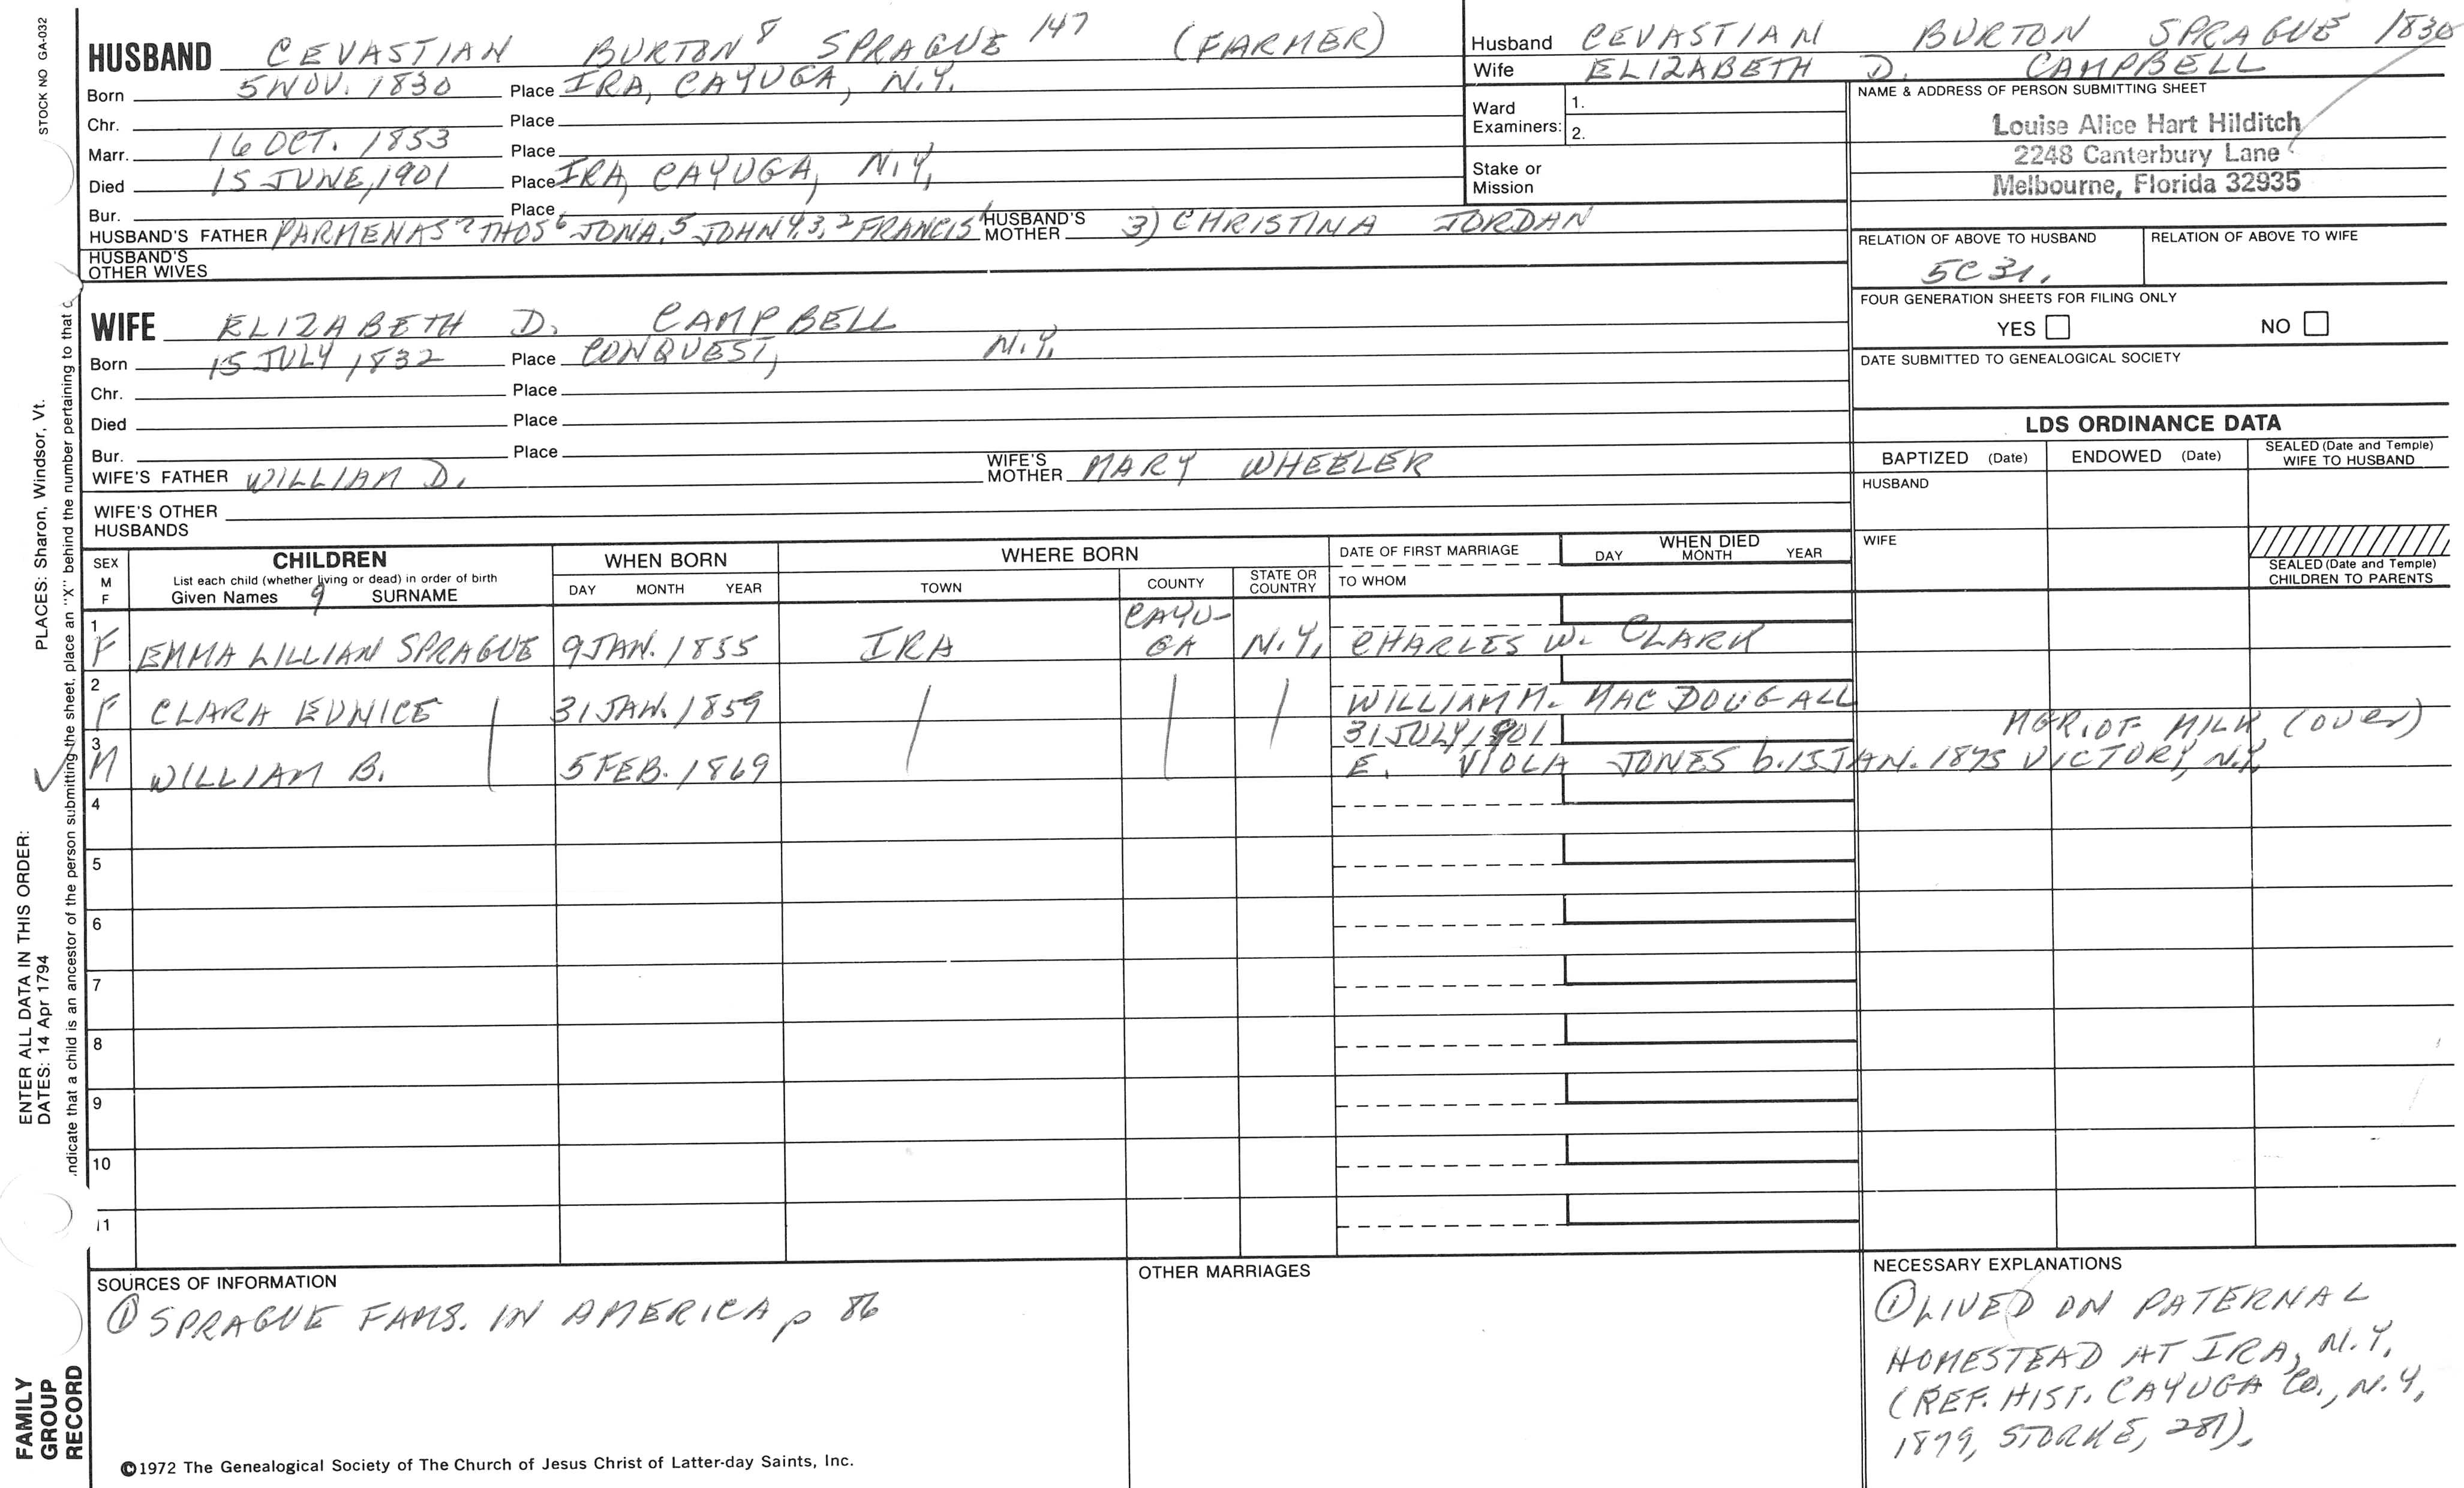 STOCK NO GA-032
PLACES: Sharon, Windsor, Vt.
ENTER ALL DATA IN THIS ORDER:
DATES: 14 Apr 1794
ndicate that a child is an ancestor of the person submitting the sheet, place an "X" behind the number pertaining to that c
FAMILY
GROUP
RECORD
HUSBAND CEVASTIAN BURTON 8 SPRAGUE 147 (FARMER)
Born 5 NOV. 1830 Place IRA, CAYUGA, N.Y.
Chr. Place
Marr. 16 OCT. 1853 Place
Died 15 JUNE, 1901 Place IRA, CAYUGA, N.Y.
Bur. Place
HUSBAND'S FATHER PARMENAS 7 THOS 6 JONA. 5 JOHN 4,3,2 FRANCIS 1 HUSBAND'S MOTHER 3) CHRISTINA JORDAN
HUSBAND'S
OTHER WIVES
Husband CEVASTIAN BURTON SPRAGUE 1830
Wife ELIZABETH D. CAMPBELL
Ward
Examiners: 1.
2.
Stake or
Mission
NAME & ADDRESS OF PERSON SUBMITTING SHEET
Louise Alice Hart Hilditch
2248 Canterbury Lane
Melbourne, Florida 32935
RELATION OF ABOVE TO HUSBAND RELATION OF ABOVE TO WIFE
5C3r.
FOUR GENERATION SHEETS FOR FILING ONLY
YES NO
DATE SUBMITTED TO GENEALOGICAL SOCIETY
WIFE ELIZABETH D. CAMPBELL
Born 15 JULY 1832 Place CONQUEST, N.Y.
Chr. Place
Died Place
Bur. Place
WIFE'S FATHER WILLIAM D. WIFE'S MOTHER MARY WHEELER
WIFE'S OTHER
HUSBANDS
LDS ORDINANCE DATA
BAPTIZED (Date) ENDOWED (Date) SEALED (Date and Temple) WIFE TO HUSBAND
HUSBAND
WIFE
SEALED (Date and Temple)
CHILDREN TO PARENTS
SEX
M
F
CHILDREN
List each child (whether living or dead) in order of birth
Given Names 9 SURNAME
WHEN BORN
DAY MONTH YEAR
WHERE BORN
TOWN COUNTY STATE OR COUNTRY
DATE OF FIRST MARRIAGE
TO WHOM
WHEN DIED
DAY MONTH YEAR
1 F EMMA LILLIAN SPRAGUE 9 JAN. 1855 IRA CAYU-GA N.Y. CHARLES W. CLARK
2 F CLARA EUNICE 31 JAN. 1859 WILLIAM M. MAC DOUGALL
3 M WILLIAM B. 5 FEB. 1869 31 JULY, 1901 MGR. OF MILK (over)
E. VIOLA JONES b. 15 JAN. 1875 VICTORY, N.Y.
4
5
6
7
8
9
10
11
SOURCES OF INFORMATION
① SPRAGUE FAMS. IN AMERICA p 86
OTHER MARRIAGES
NECESSARY EXPLANATIONS
① LIVED ON PATERNAL
HOMESTEAD AT IRA, N.Y.
(REF. HIST. CAYUGA CO., N.Y.
1879, STORKE, 281).
©1972 The Genealogical Society of The Church of Jesus Christ of Latter-day Saints, Inc.